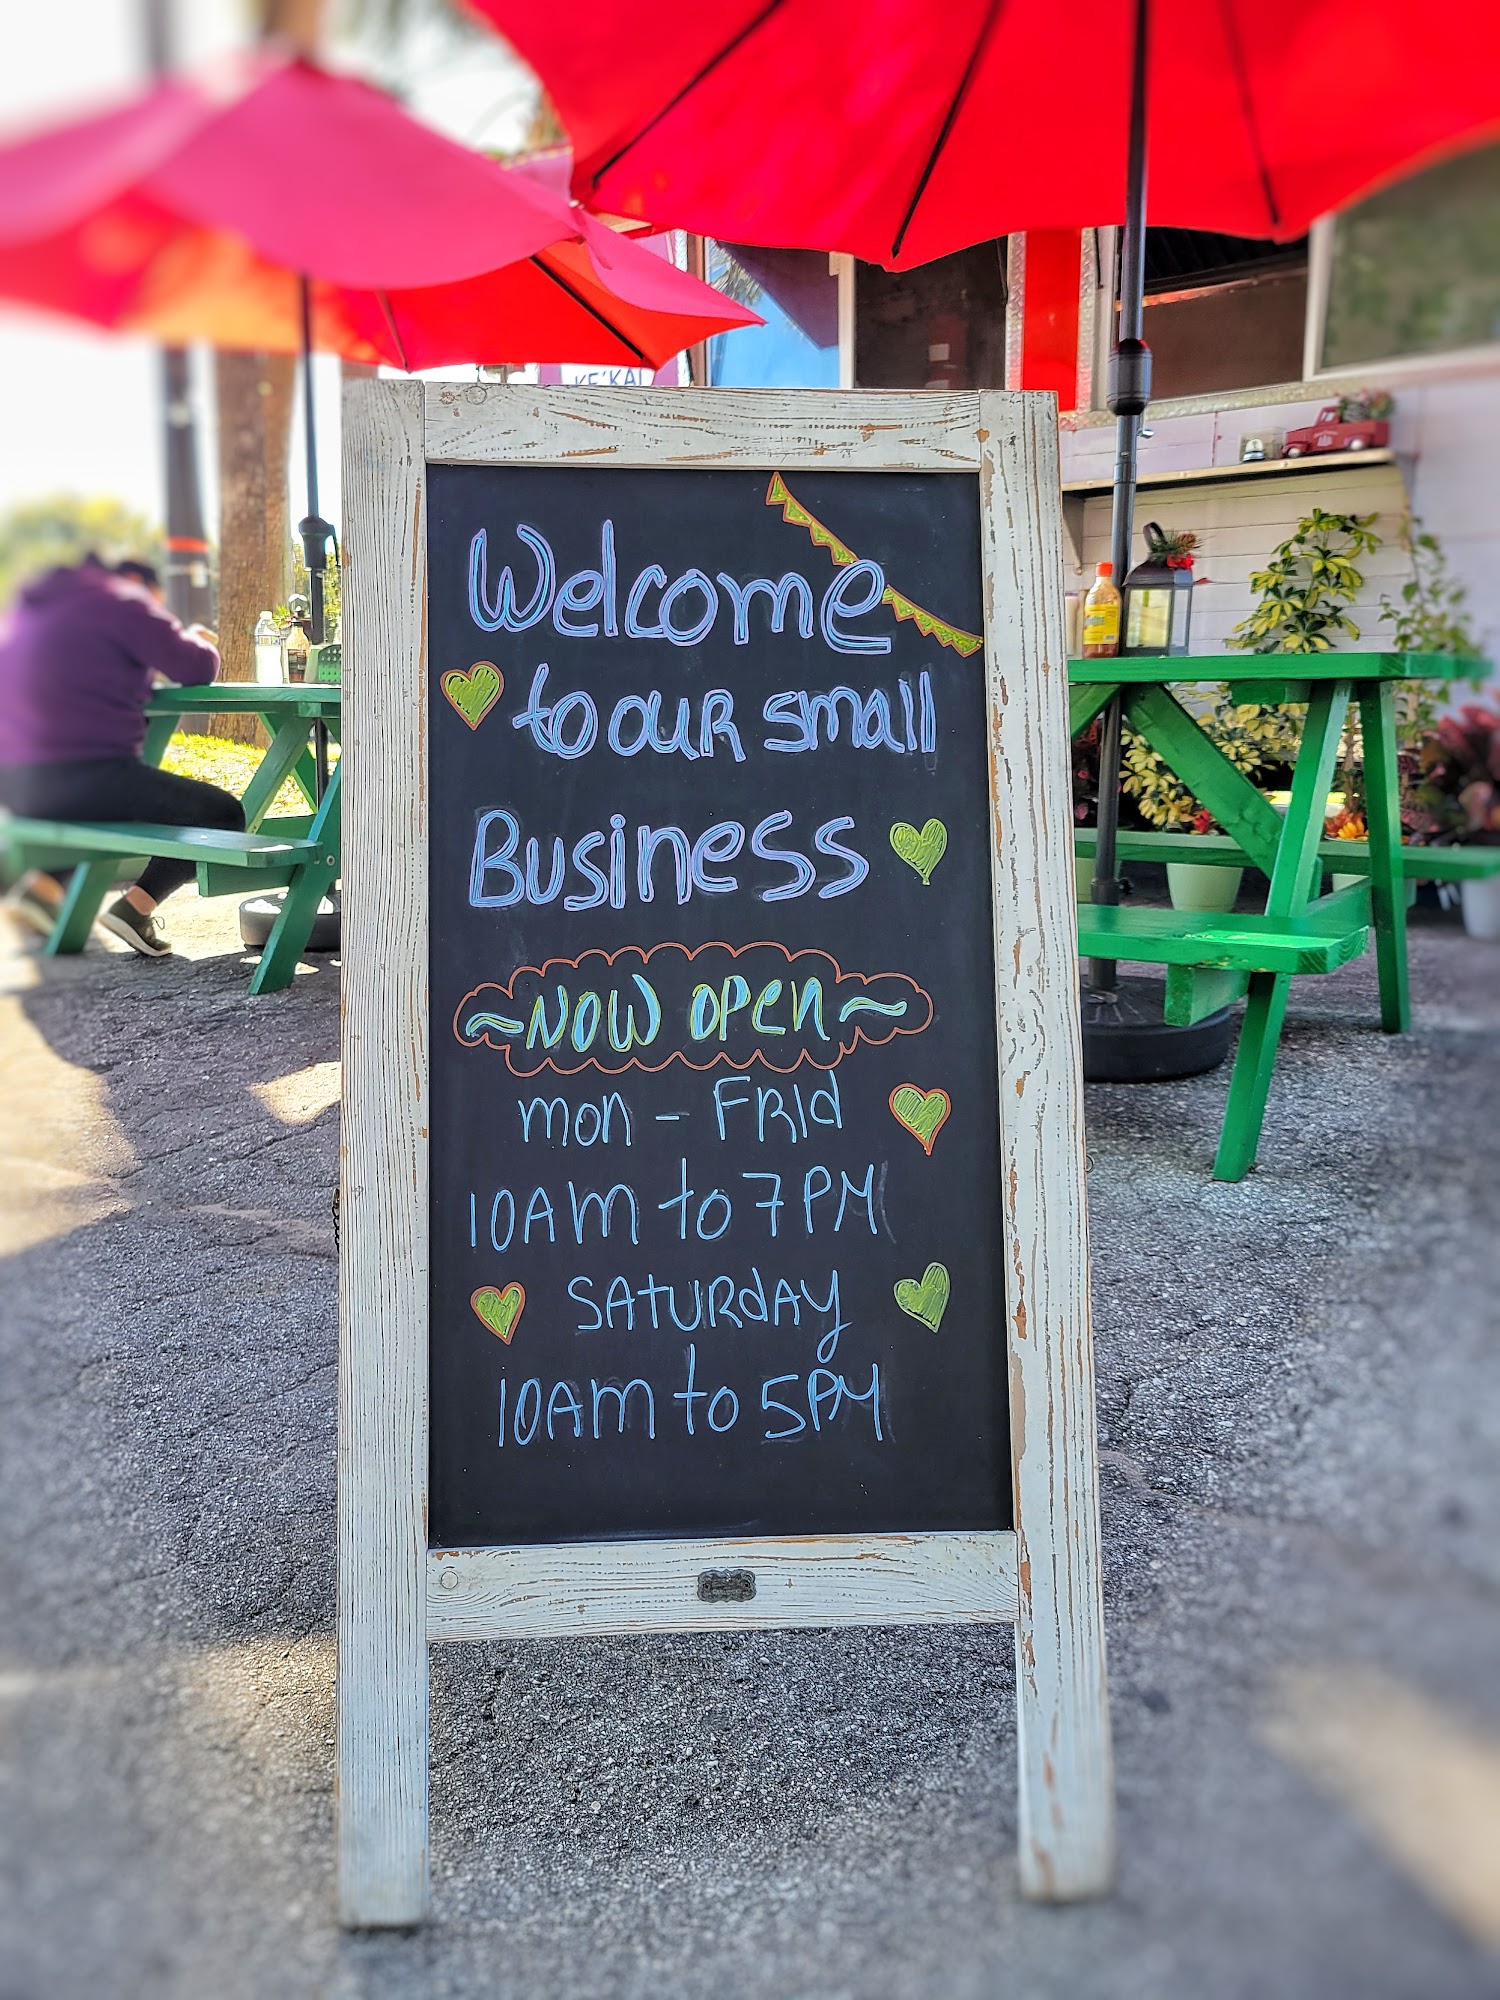 KE'KAI
Welcome
to our small
Business
~ Now open ~
mon - FRId
10AM to 7PM
SATURdAy
10AM to 5PM